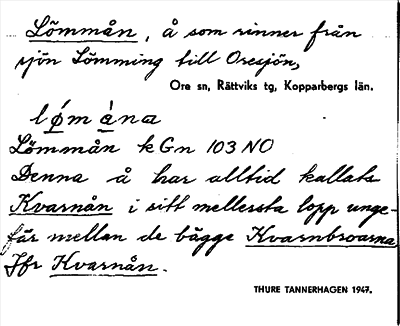 Lömmån, å som rinner från
sjön Lömming till Oresjön,
Ore sn, Rättviks tg, Kopparbergs län.
lø̀màna
Lömmån kGn 103 NO
Denna å har alltid kallats
Kvarnån i sitt mellersta lopp unge-
fär mellan de bägge Kvarnbroarna
Jfr Kvarnån.
THURE TANNERHAGEN 1947.